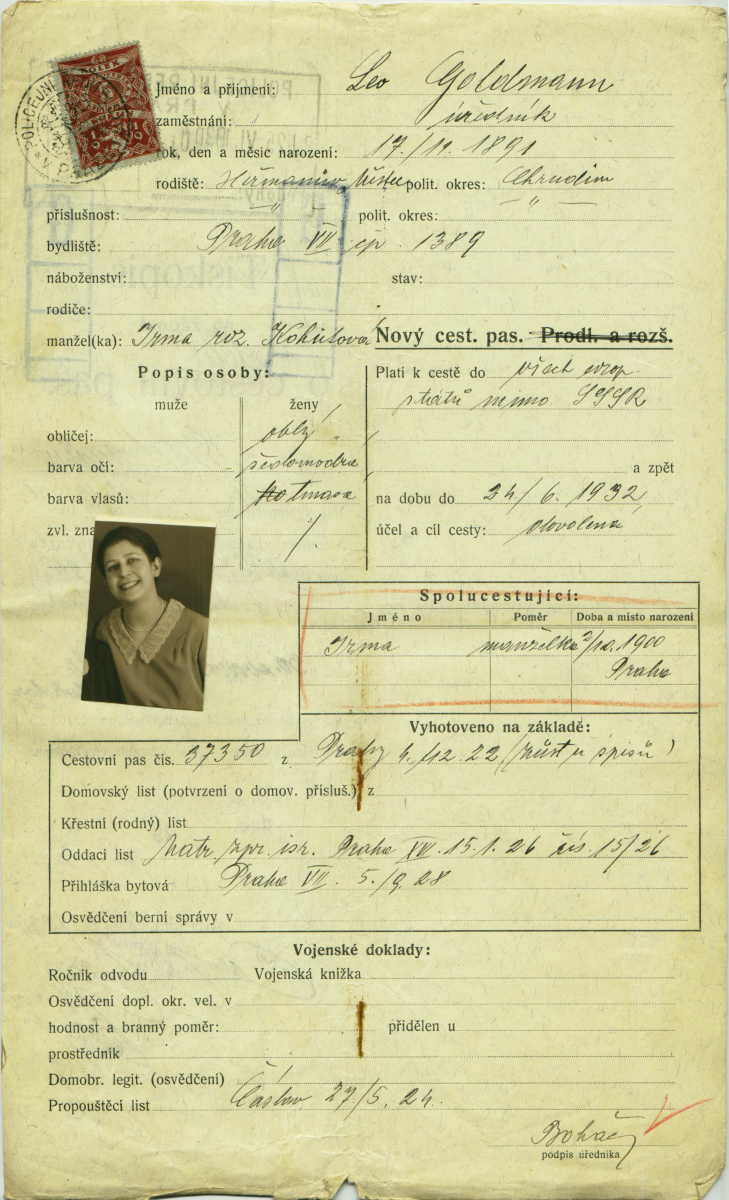 Jméno a příjmení: Leo Goldmann
zaměstnání: úředník
rok, den a měsíc narození: 17./11. 1891
rodiště: Heřmanův Městec polit. okres: Chrudim
příslušnost: — „ — polit. okres: — „ —
bydliště: Praha VII čp. 1389
náboženství: stav:
rodiče:
manžel(ka): Irma roz. Kohútova
Nový cest. pas. Prodl. a rozš.
Popis osoby:
muže ženy
obličej: oblý
barva očí: šedomodra
barva vlasů: tmava
zvl. zna /.
Platí k cestě do všech evrop.
států mimo SSSR
a zpět
na dobu do 24/6. 1932
účel a cíl cesty: dovolena
Spolucestující:
Jméno Poměr Doba a místo narození
Irma manželka 3/10. 1900
Praha
Vyhotoveno na základě:
Cestovní pas čís. 37350 z Prahy 4./12. 22
Domovský list (potvrzení o domov. přísluš.) z
Křestní (rodný) list
Oddací list Praha XII. 15.1.26 čís. 15/26
Přihláška bytová Praha VII. 5./9.28
Osvědčení berní správy v
Vojenské doklady:
Ročník odvodu Vojenská knížka
Osvědčení dopl. okr. vel. v
hodnost a branný poměr: přidělen u
prostředník
Domobr. legit. (osvědčení)
Propouštěcí list Čáslav 27/5. 24.
Boháč
podpis úředníka